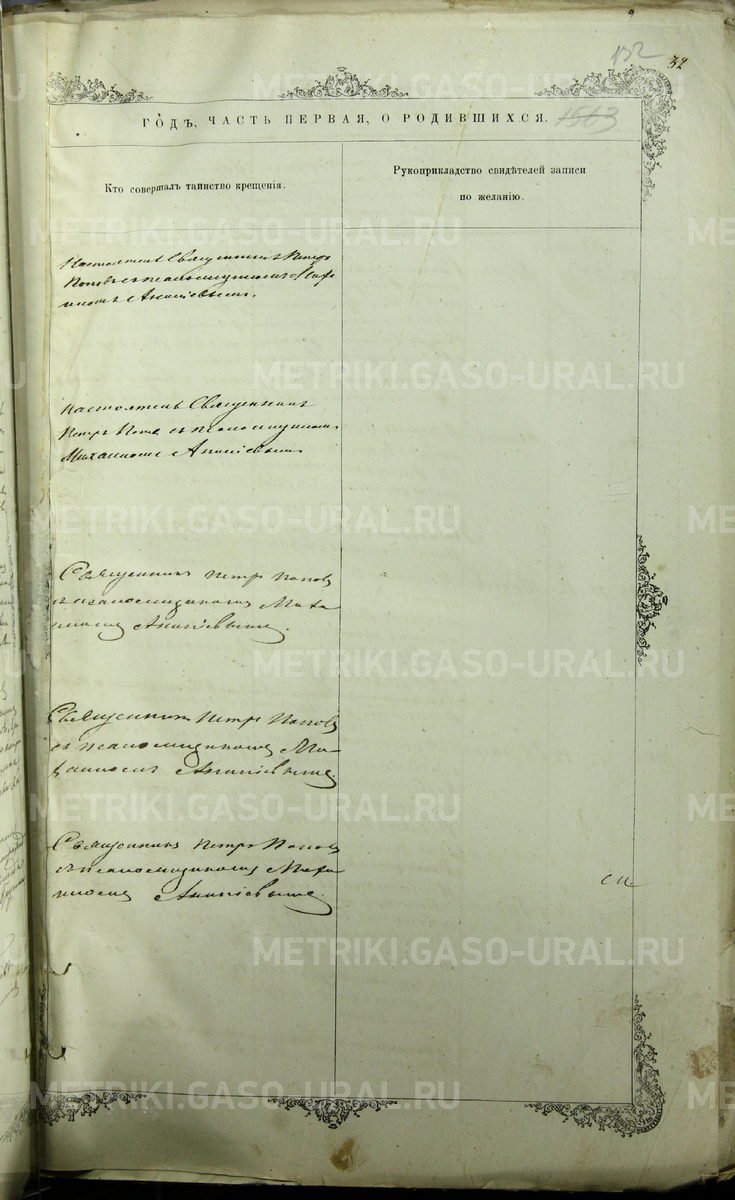 132
32
ГОДЪ, ЧАСТЬ ПЕРВАЯ, О РОДИВШИХСЯ.
Кто совершалъ таинство крещенія.
Рукоприкладство свидѣтелей записи
по желанію.
Настоятель Священникъ Петръ
Поповъ съ псаломщикомъ
Ананіевымъ.
Настоятель Священникъ
Петръ Попов съ псаломщикомъ
Михаиломъ Ананіевымъ
Священникъ Петръ Попов
съ псаломщикомъ Миха
иломъ Ананіевымъ.
Священникъ Петръ Поповъ
съ псаломщикомъ Ми-
хаиломъ Ананіевымъ.
Священникъ Петръ Попов
съ псаломщикомъ Миха
иломъ Ананіевымъ.
METRIKI.GASO-URAL.RU